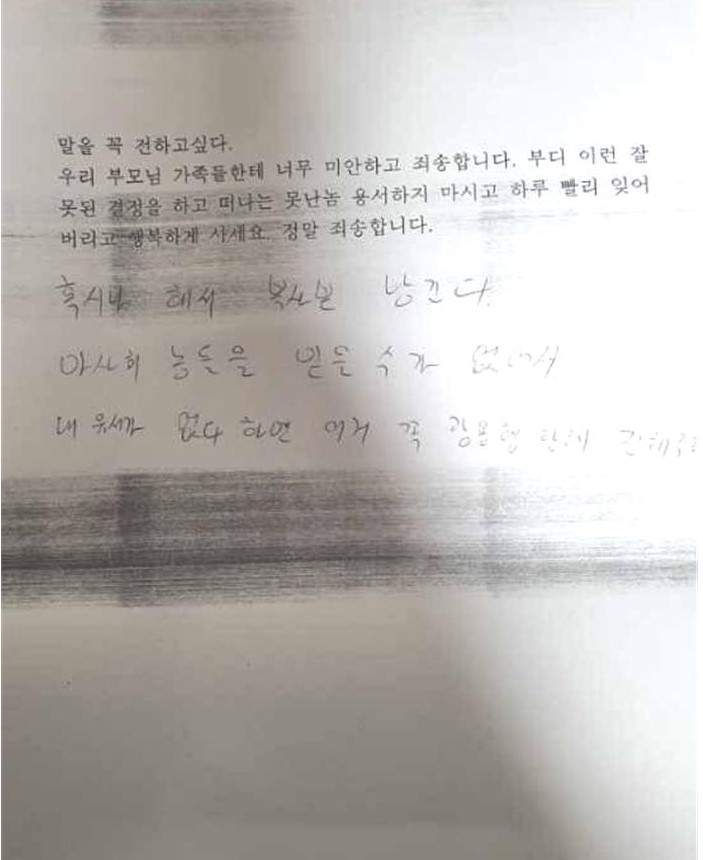 말을 꼭 전하고싶다.
우리 부모님 가족들한테 너무 미안하고 죄송합니다. 부디 이런 잘
못된 결정을 하고 떠나는 못난놈 용서하지 마시고 하루 빨리 잊어
버리고 행복하게 사세요. 정말 죄송합니다.
혹시나 해서 복사본 남긴다.
마사회 놈들을 믿을 수가 없어서
내 유서가 없다 하면 이거 꼭 한테 전해주라